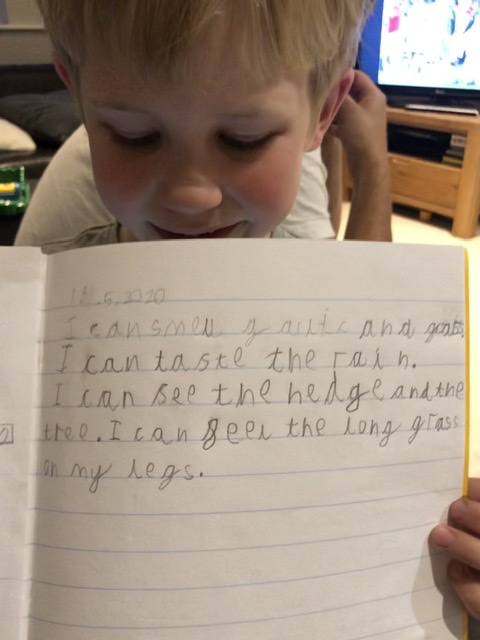 18.5.2020
I can smell garlic and goats.
I can taste the rain.
I can see the hedge and the
tree. I can feel the long grass
on my legs.